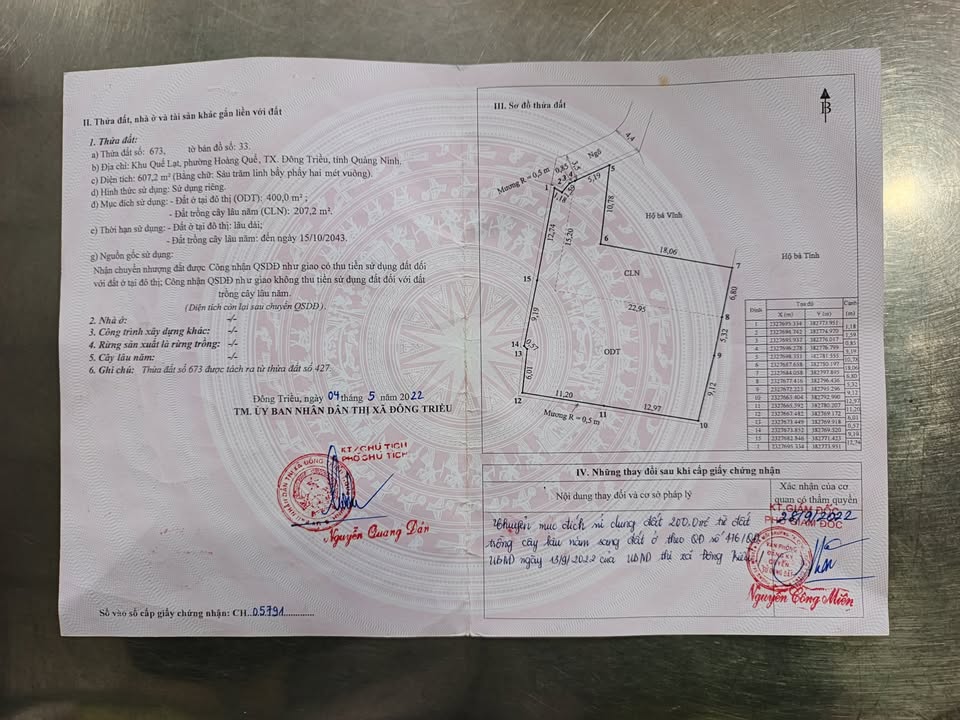 II. Thửa đất, nhà ở và tài sản khác gắn liền với đất
1. Thửa đất:
a) Thửa đất số: 673, tờ bản đồ số: 33.
b) Địa chỉ: Khu Quế Lạt, phường Hoàng Quế, TX. Đông Triều, tỉnh Quảng Ninh.
c) Diện tích: 607,2 m² (Bằng chữ: Sáu trăm linh bẩy phẩy hai mét vuông).
d) Hình thức sử dụng: Sử dụng riêng.
đ) Mục đích sử dụng: - Đất ở tại đô thị (ODT): 400,0 m² ;
- Đất trồng cây lâu năm (CLN): 207,2 m².
e) Thời hạn sử dụng: - Đất ở tại đô thị: lâu dài;
- Đất trồng cây lâu năm: đến ngày 15/10/2043.
g) Nguồn gốc sử dụng:
Nhận chuyển nhượng đất được Công nhận QSDĐ như giao có thu tiền sử dụng đất đối
với đất ở tại đô thị; Công nhận QSDĐ như giao không thu tiền sử dụng đất đối với đất
trồng cây lâu năm.
(Diện tích còn lại sau chuyển QSDĐ)
2. Nhà ở: -/-
3. Công trình xây dựng khác: -/-
4. Rừng sản xuất là rừng trồng: -/-
5. Cây lâu năm: -/-
6. Ghi chú: Thửa đất số 673 được tách ra từ thửa đất số 427.
Đông Triều, ngày 04 tháng 5 năm 2022
TM. ỦY BAN NHÂN DÂN THỊ XÃ ĐÔNG TRIỀU
KT/CHỦ TỊCH
PHÓ CHỦ TỊCH
Nguyễn Quang Dân
Số vào sổ cấp giấy chứng nhận: CH..05791
III. Sơ đồ thửa đất
B
4,4
Ngõ
Mương R = 0,5 m
0,85
1 2 3 4 5
1,18
1,59
5,19
10,78
Hộ bà Vĩnh
12,74
15,20
6
18,06
7
Hộ bà Tính
CLN
15
6,80
22,95
8
9,19
5,32
14
0,57
13
ODT
9
6,01
9,12
12
11,20
11
12,97
10
Mương R = 0,5 m
Đỉnh Tọa độ Cạnh
X (m) Y (m) (m)
1,18
1,59
0,85
5,19
10,78
18,06
6,80
5,32
9,12
12,97
11,20
6,01
0,57
9,19
12,74
IV. Những thay đổi sau khi cấp giấy chứng nhận
Nội dung thay đổi và cơ sở pháp lý
Xác nhận của cơ
quan có thẩm quyền
28/9/2022
KT.GIÁM ĐỐC
PHÓ GIÁM ĐỐC
Chuyển mục đích sử dụng đất 200.0m² từ đất
trồng cây lâu năm sang đất ở theo QĐ số
UBND ngày 13/9/2022 của UBND thị xã Đông Triều
Nguyễn Công Miên